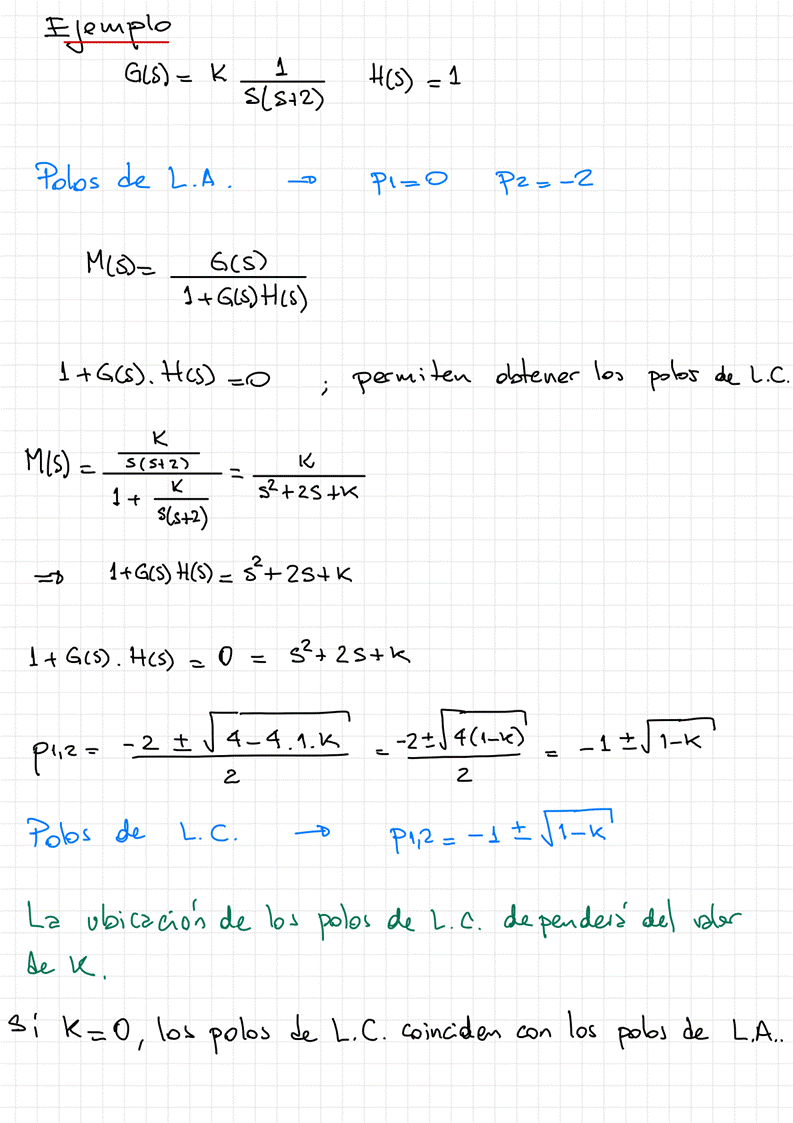 Ejemplo
G(s) = K \frac{1}{s(s+2)} H(s) = 1
Polos de L.A. → p1=0 p2=-2
M(s) = \frac{G(s)}{1+G(s)H(s)}
1+G(s).H(s)=0 ; permiten obtener los polos de L.C.
M(s) = \frac{\frac{K}{s(s+2)}}{1+\frac{K}{s(s+2)}} = \frac{K}{s^2+2s+K}
⇒ 1+G(s)H(s) = s^2+2s+K
1+G(s).H(s) = 0 = s^2+2s+K
p1,2 = \frac{-2 ± \sqrt{4-4.1.K}}{2} = \frac{-2±\sqrt{4(1-K)}}{2} = -1 ± \sqrt{1-K}
Polos de L.C. → p1,2 = -1 ± \sqrt{1-K}
La ubicación de los polos de L.C. dependerá del valor
de K.
Si K=0, los polos de L.C. coinciden con los polos de L.A..